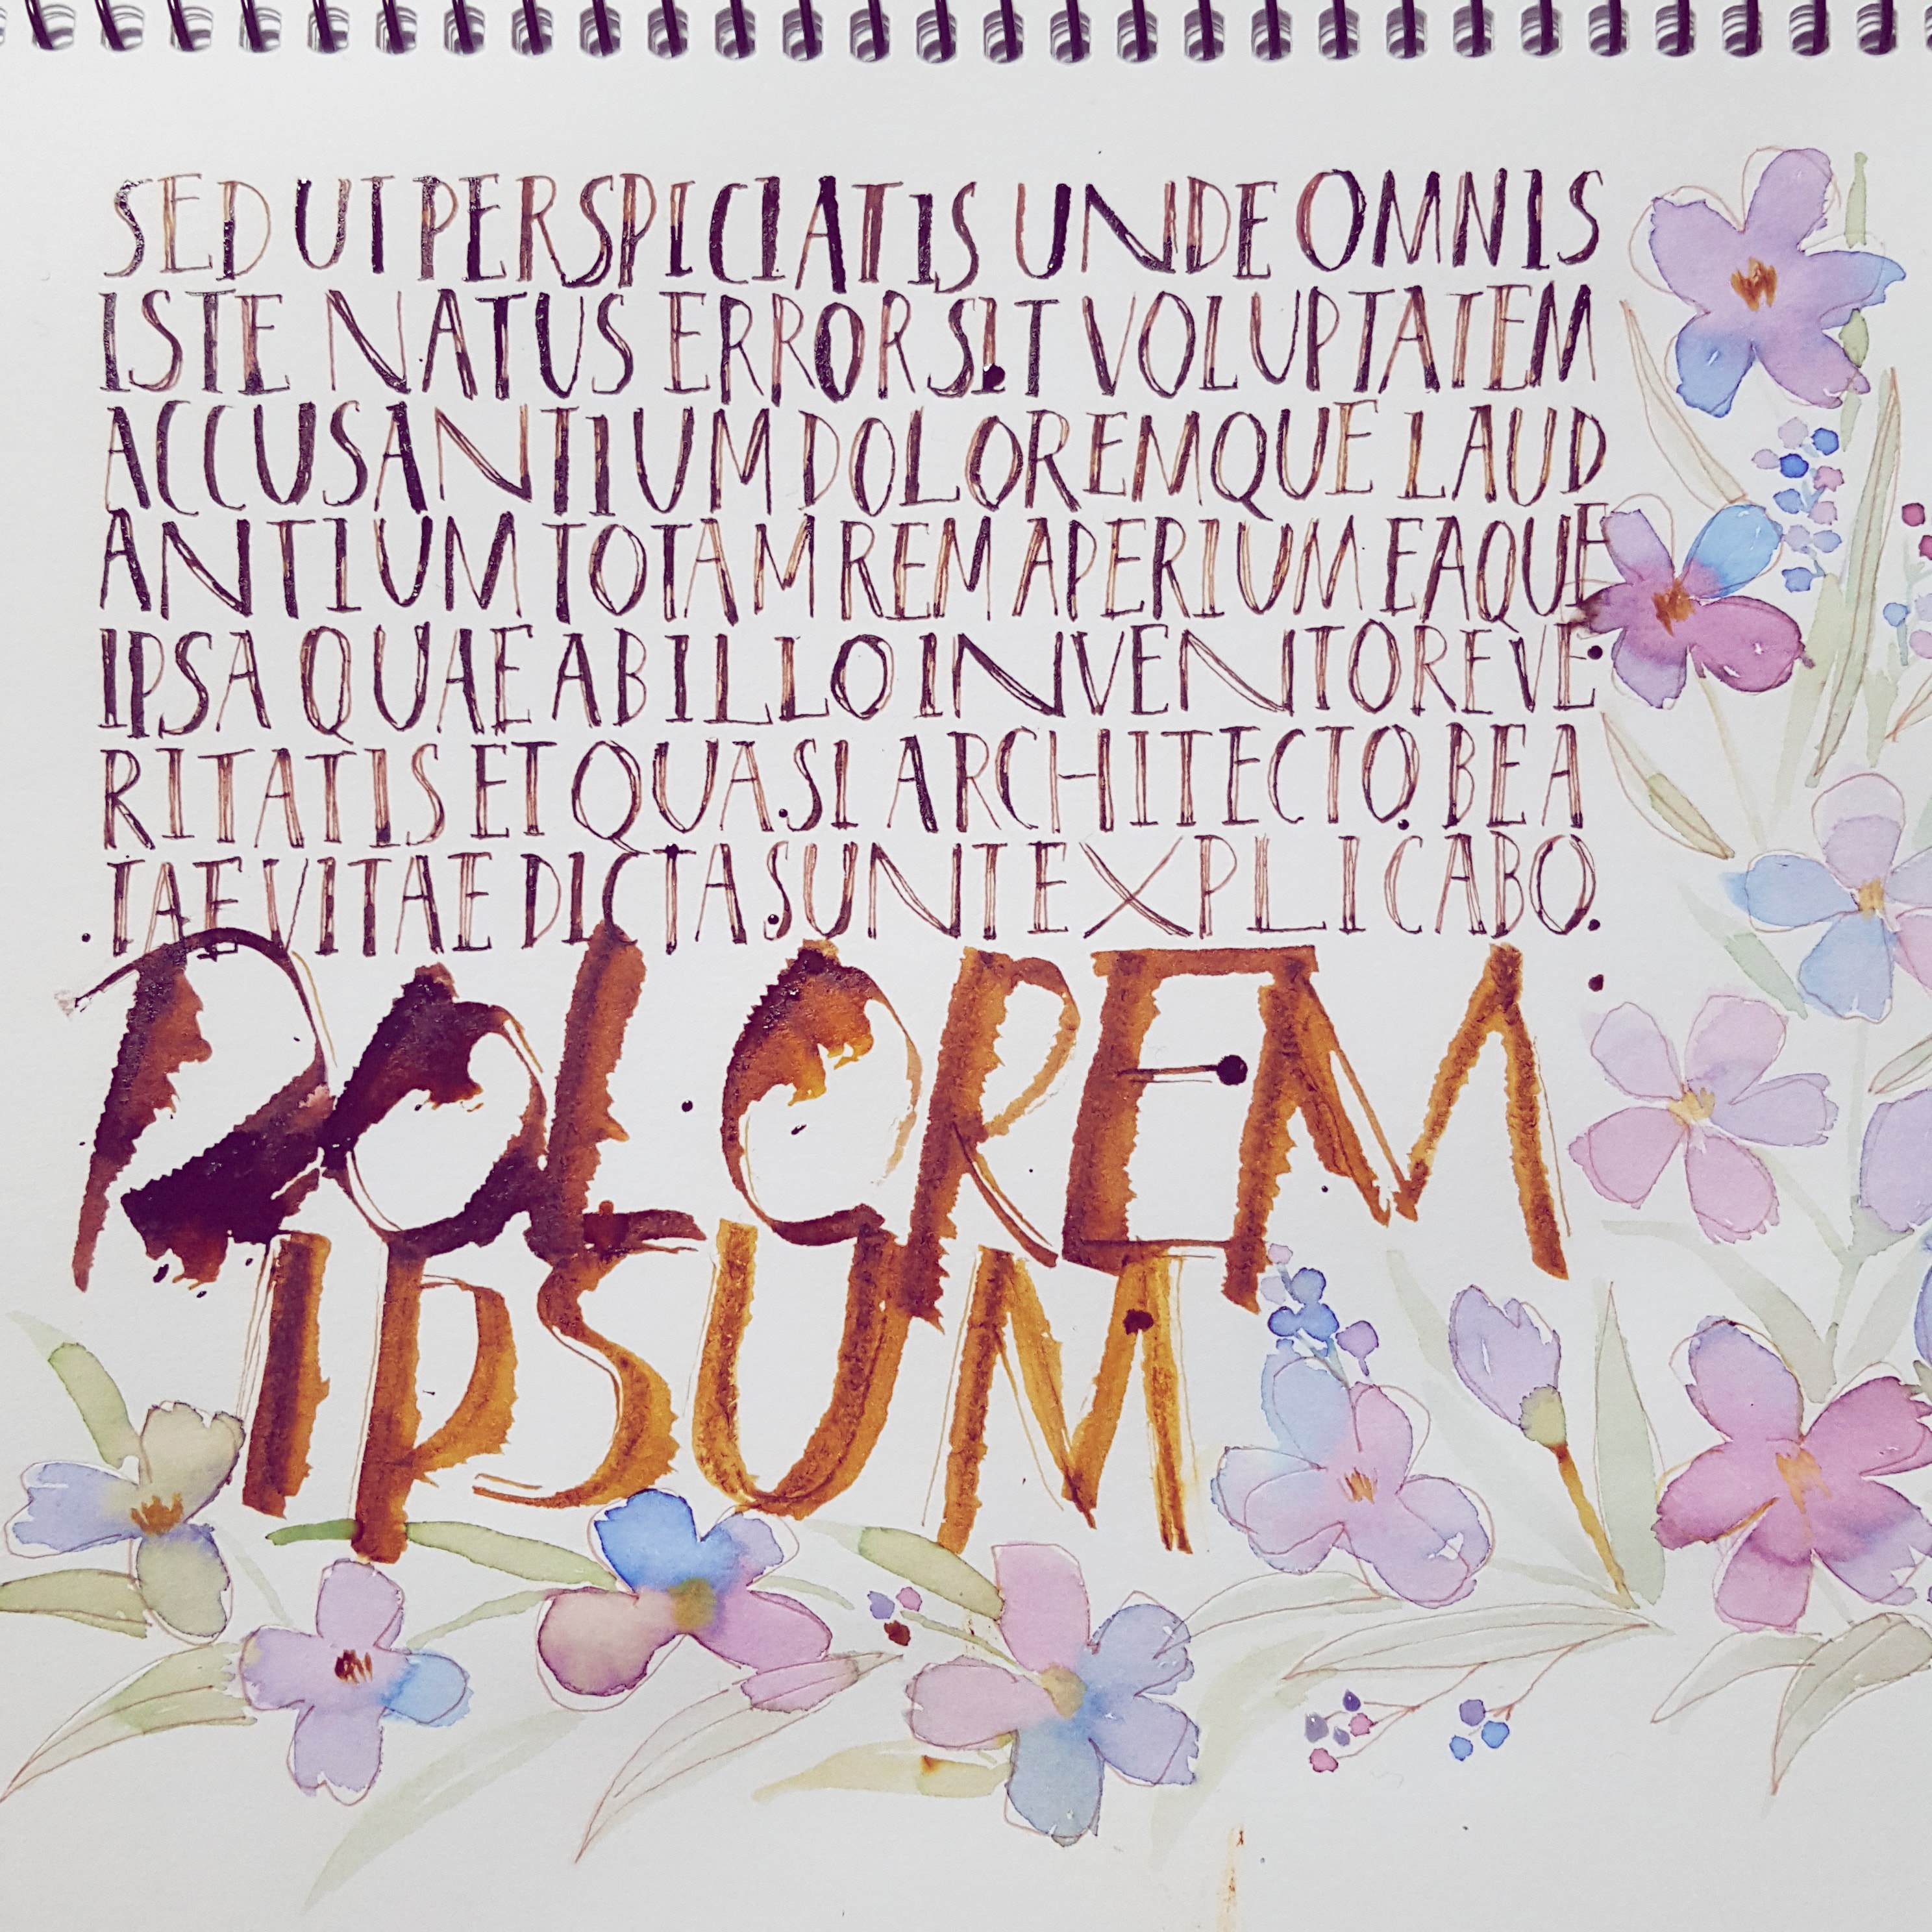 SED UT PERSPICIATIS UNDE OMNIS
ISTE NATUS ERROR SIT VOLUPTATEM
ACCUSANTIUM DOLOREMQUE LAUD
ANTIUM TOTAM REM APERIUM EAQUE
IPSA QUAE AB ILLO INVENTORE VE
RITATIS ET QUASI ARCHITECTO BEA
TAE VITAE DICTA SUNT EXPLICABO.
DOLOREM
IPSUM